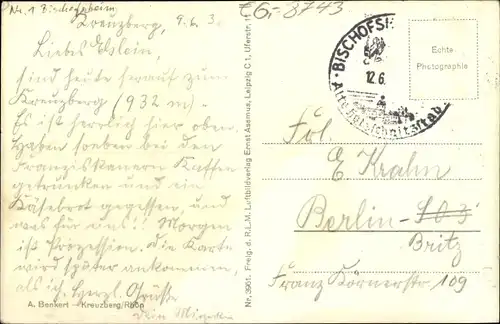 Nr. 1 Bischofsheim
Kreuzberg, 9.6.3
Liebes Elslein,
sind heute herauf zum
Kreuzberg (932 m) -
Es ist herrlich hier oben.
Haben soeben bei den
Franziskanern Kaffee
getrunken und ein
Käsebrot gegessen, und
was für uns!! Morgen
ist Prozession. Die Karte
wird später ankommen,
als ich. Herzl. Grüsse
Dein
A. Benkert - Kreuzberg/Rhön
Nr. 3961. Freig. d. R.L.M. Luftbildverlag Ernst Assmus, Leipzig C 1, Uferstr. 11
€6,- 8743
BISCHOFSH
12.6
Echte
Photographie
Frl.
E Krahn
Berlin-SO3
Britz
Franz Körnerstr 109